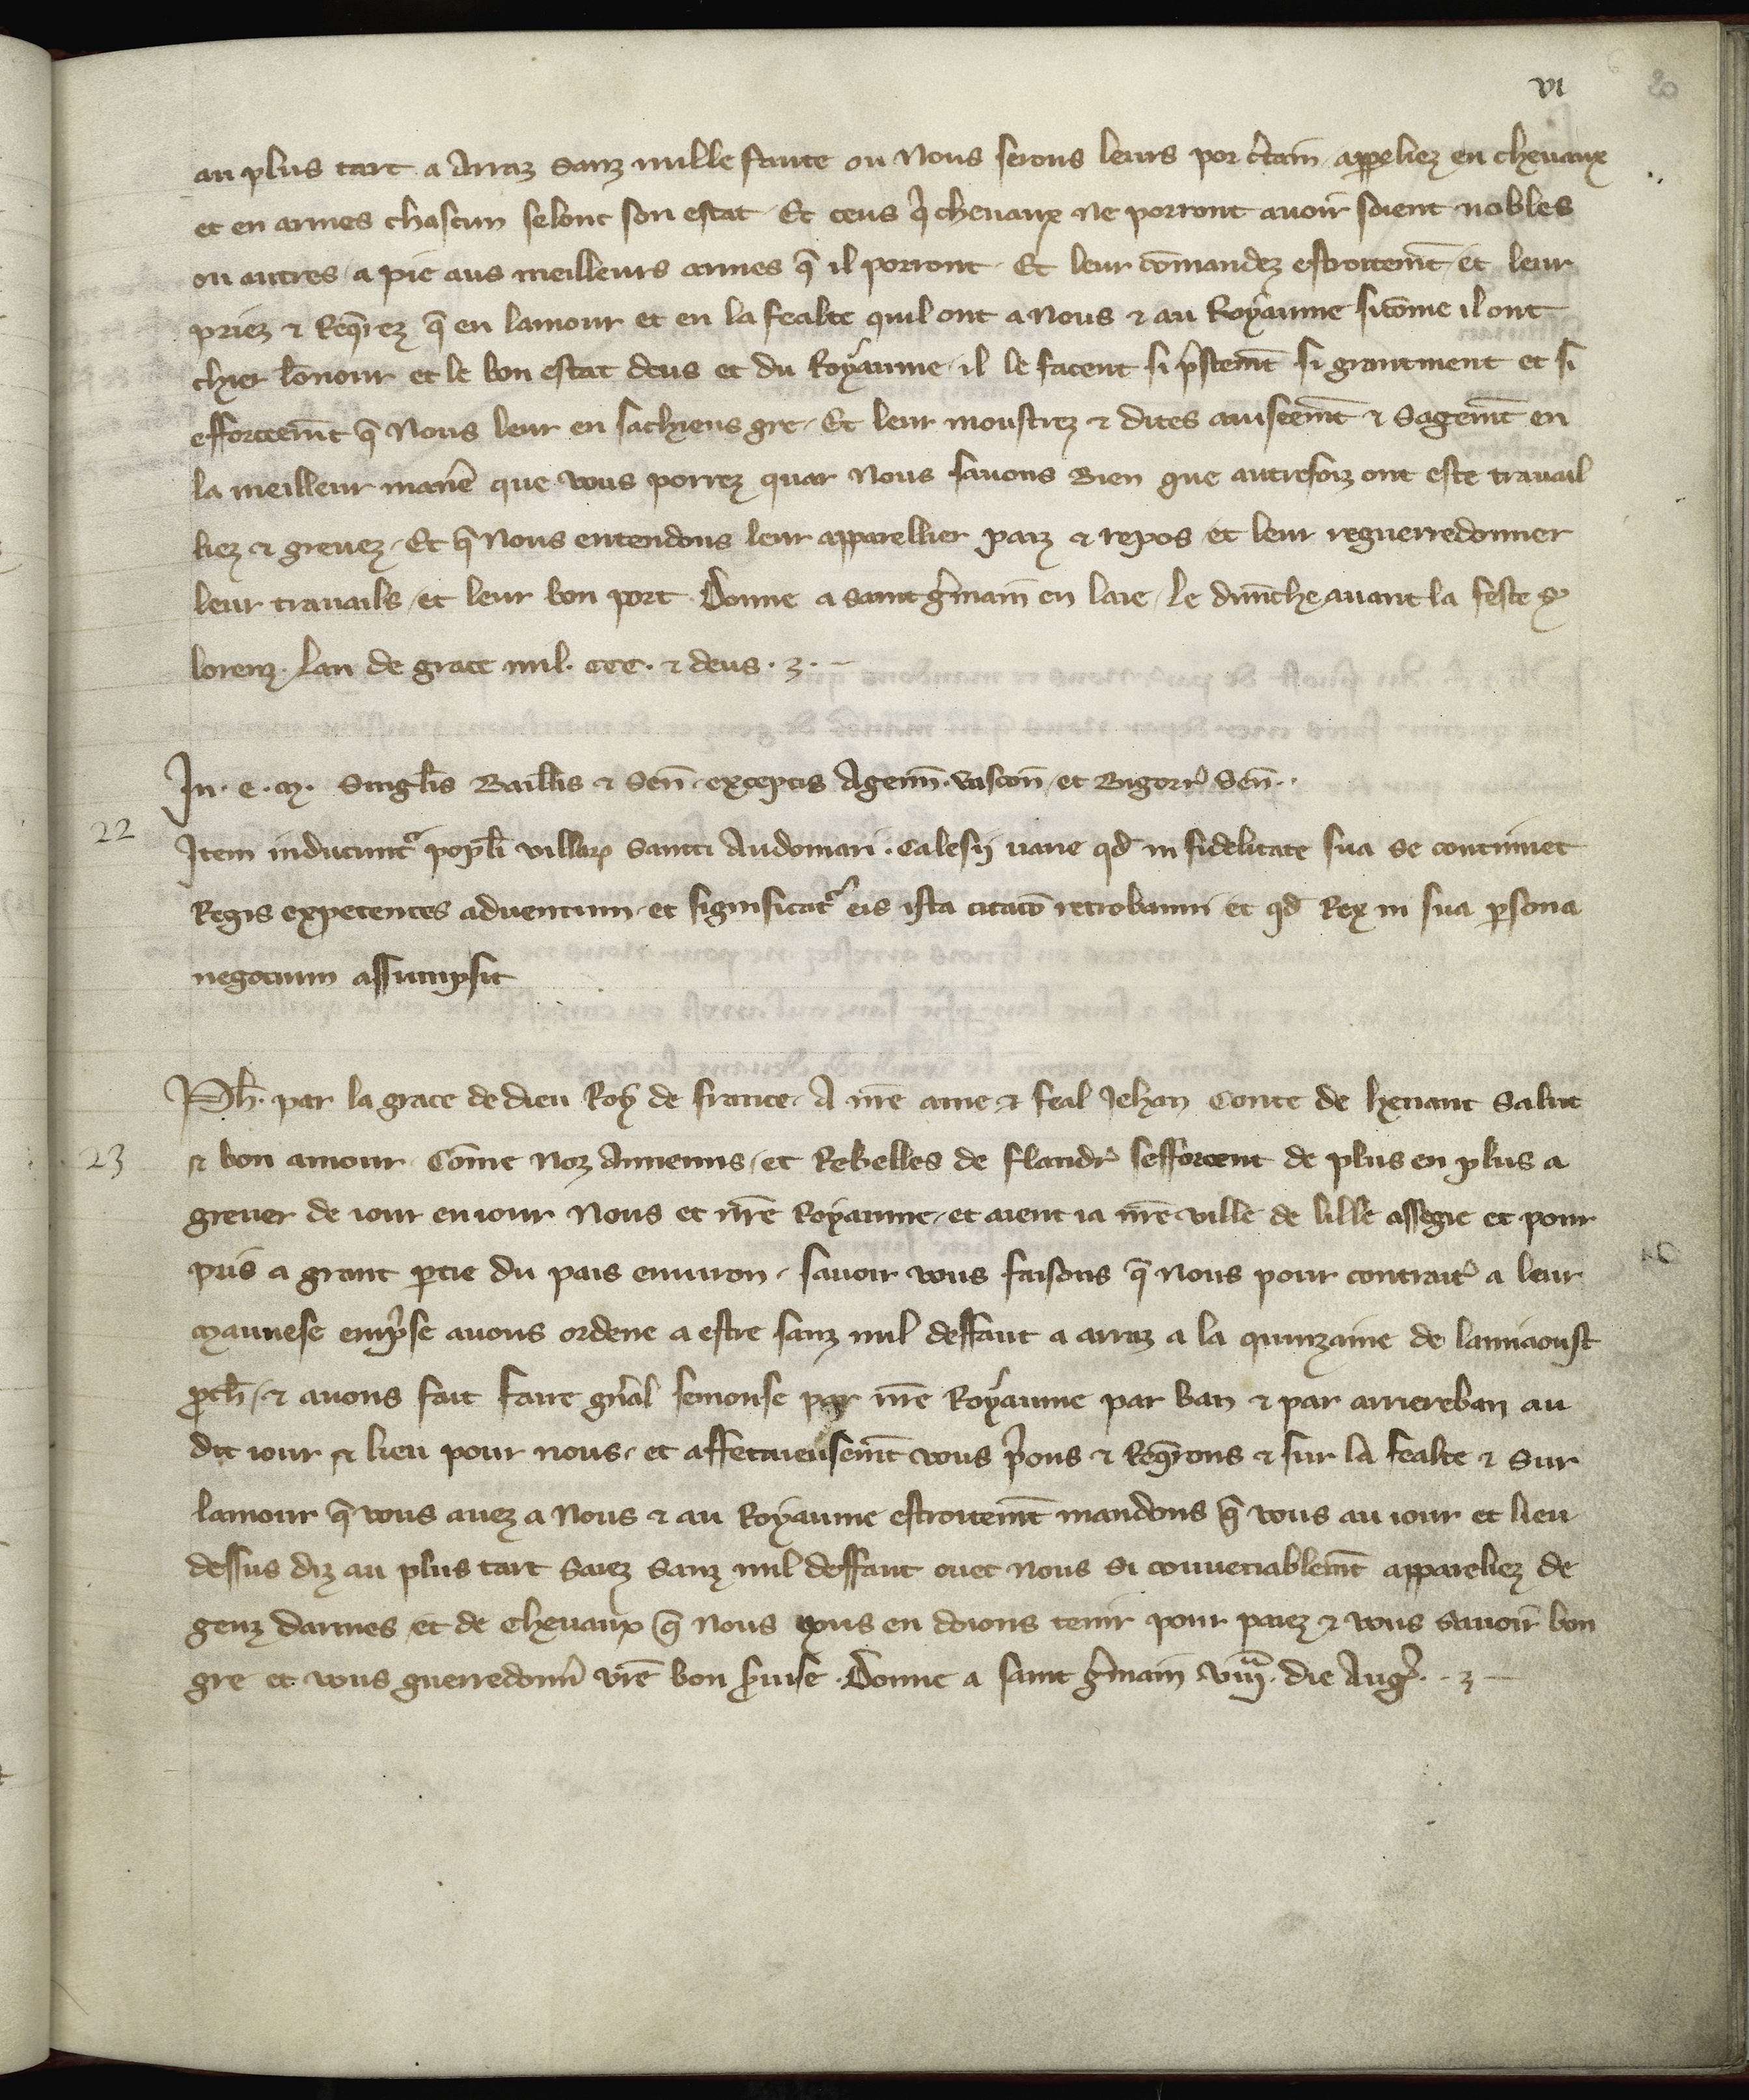 vi
au plus tart a Arraz sanz nulle faute ou Nous serons leurs por c̾tain appeliez en cheuaux
et en armes chascun selonc son estat. Et ceus q̾ cheuaux Ne porront auoir soient nobles
ou autres a pie aus meilleurs armes q̄ il porront. Et leur cōmandez estroitem̄t et leur
priez ⁊ Req̄rez q̄ en lamour et en la fealte quil ont a Nous ⁊ au Royaume sicōme il ont
chier lōnour et le bon estat deus et du Royaume il le facent si p̾stem̄t si grantment et si
efforceem̄t q̄ Nous leur en sachiens gre. Et leur moustrez ⁊ dites auiseem̄t ⁊ Sagem̄t en
la meilleur manē que vous porrez quar Nous sauons Bien que autrefoiz ont este trauail
liez ⁊ greuez. Et q̄ Nous entendons leur apparellier paiz ⁊ repos et leur reguerredonner
leur trauails et leur bon port. Donne a saint g̾main en laie. Le dim̄che auant la feste S̾
lorenz. Lan de grace mil. CCC. ⁊ deus. ʒ. –
In. e. m. Singl̄is Baill̄is ⁊ Sen̄. exceptis Agenn̄. Vascon̄ et Bigorr̾ Sen̄.
22
Item inducunt᷑ popl̄i villaꝝ Sancti Audomari. Calesij qd̄ in fidelitate sua se continuet
Regis expetentes aduentum et significat᷑ eis ista citatō retrobanni et qd̄ Rex in sua ꝑsona
negotium assumpsit
Ph̄. par la grace de dieu Roy de france. A nr̄e ame ⁊ feal Jehan Conte de henaut Salut
23
⁊ bon amour. Cōme Noz Annemis et Rebelles de flandr̾ sefforcent de plus en plus a
greuer de iour en iour Nous et nr̄e Royaume et aient ia nr̄e ville de lille assegie et pour
pris a grant ꝑtie du pais enuiron. sauoir vous faisons q̄ Nous pour contrait̾ a leur
Mauuese emp̾se auons ordene a estre sanz nul deffaut a arraz a la quinzaine de lamiaoust
ꝓch̄. ⁊ auons fait faire gn̾al semonse par nr̄e Royaume par ban ⁊ par arriereban au
dit iour ⁊ lieu pour nous. et affectueusem̄t vous p̾ons ⁊ Req̄rons ⁊ sur la fealte ⁊ Sur
lamour q̄ vous auez a Nous ⁊ au Royaume estroitem̄t mandons q̄ vous au iour et lieu
dessus diz au plus tart Saiez Sanz nul deffaut ouec Nous Si conuenablem̄t appareliez de
genz darmes et de Cheuaux q̄ Nous vous en doions tenir pour paiez ⁊ vous Sauoir bon
gre et vous guerredonn̾ vr̄e bon s̾uise. Donne a saint g̾main viij. die Aug᷑. ʒ –